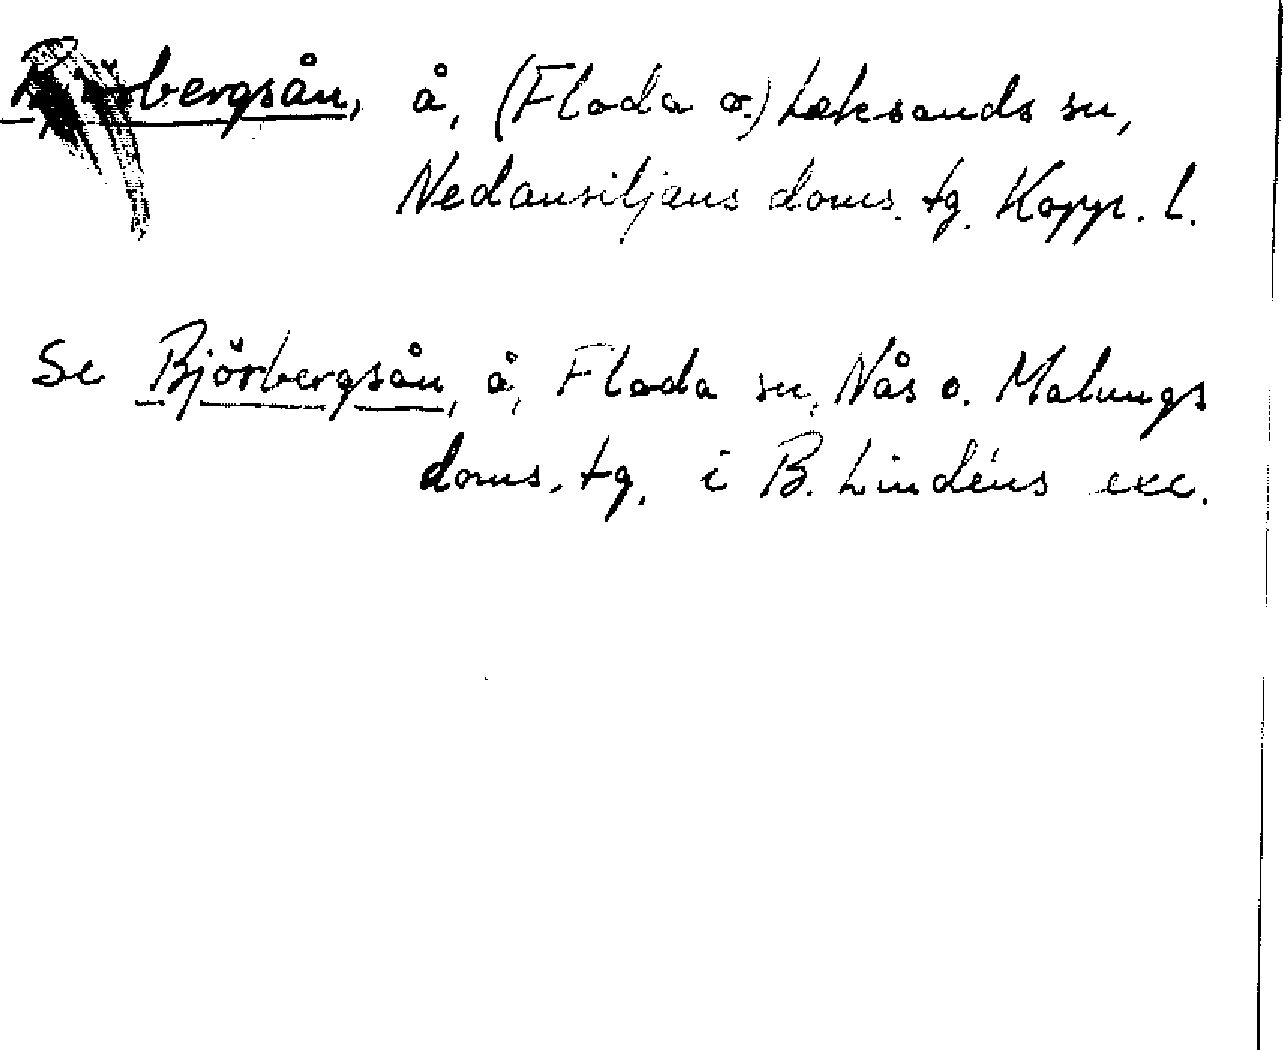 Björbergsån, å, (Floda o.) Leksands sn,
Nedansiljans doms. tg. Kopp. l.
Se Björbergsån, å, Floda sn, Nås o. Malungs
doms. tg. i B. Lindéns exc.